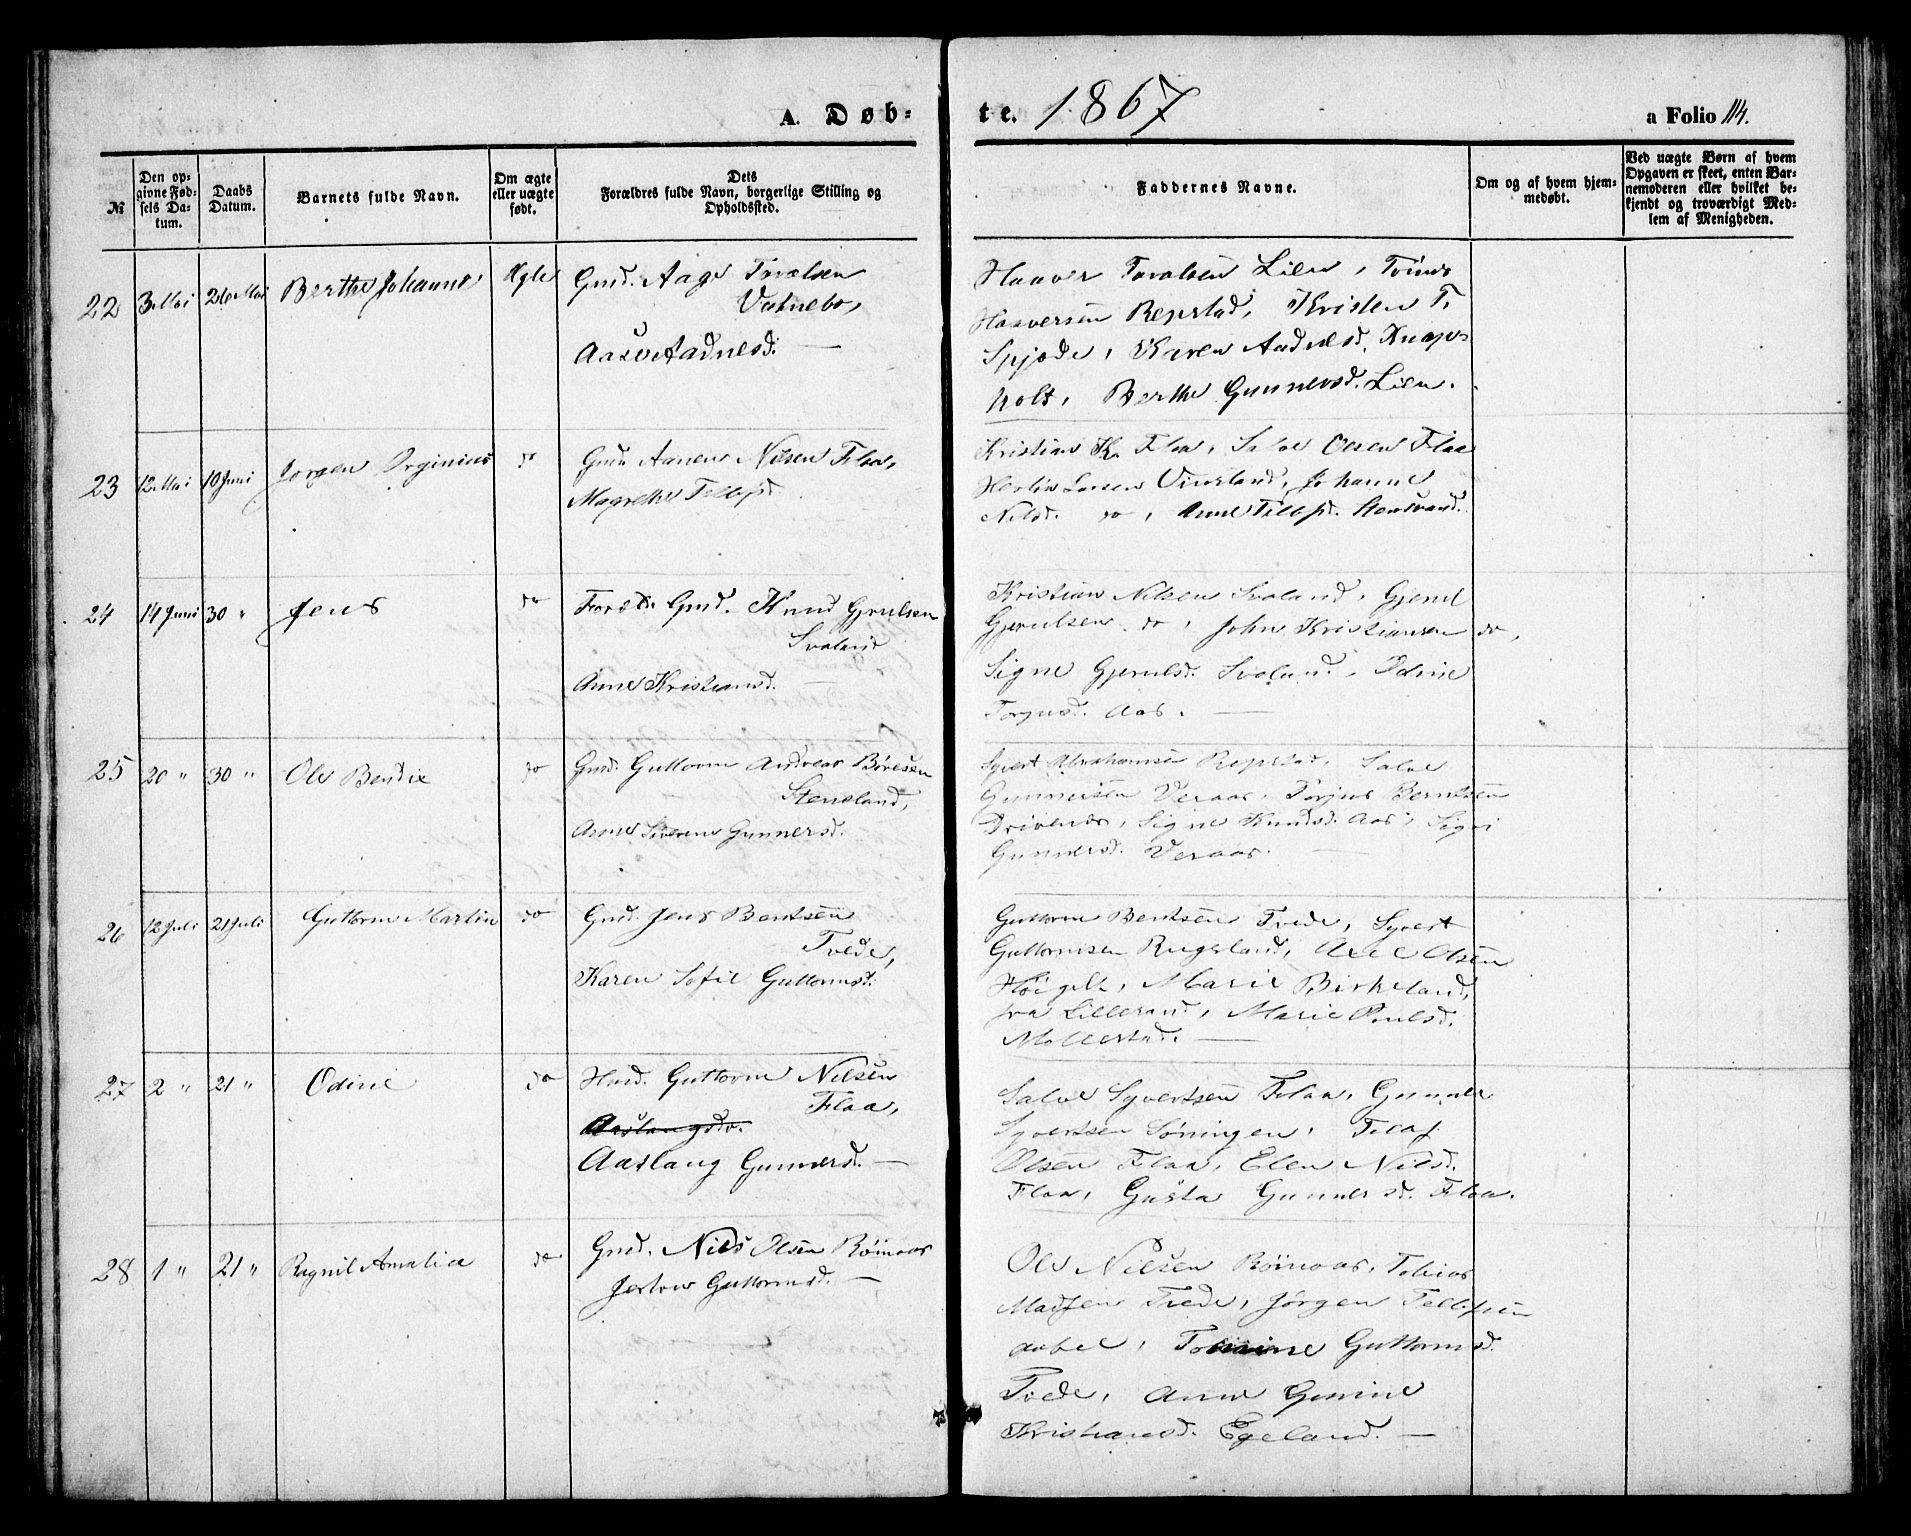 A. Døb-
te. 1867
a Folio 114.
№
Den op-
givne Fød-
sels Da-
tum.
Daabs
Datum.
Barnets fulde Navn.
Om ægte
eller uægte
født.
Dets
Forældres fulde Navn, borgerlige Stilling og
Opholdssted.
Faddernes Navne.
Om og af hvem hjem-
medøbt.
Ved uægte Børn af hvem
Opgaven er skeet, enten Bar-
nemoderen eller hvilket be-
kjendt og troværdigt Med-
lem af Menigheden.
22 3 Mai 26 Mai Berthe Johanne Ægte
Gmd. Aage Taralsen
Vatnebo,
Aase Aadnesd. —
Haaver Taralsen Lien, Tønes
Haaversen Repstad, Kristen T.
Spjode, Karen Aadnesd. Knap-
holt, Berthe Gunnersd. Lien.
23 12 Mai 10 Juni Jorgen Orginius do
Gmd. Aanen Nilsen Flaa,
Magrethe Tellefsd.
Kristian K. Flaa, Salve Olsen Flaa
Larsen Vinsland, Johanne
Nilsd. do, Anne Tellefsd. Stensvand.
24 14 Juni 30 " Jens do
Gmd. Knud Gjerulsen
Svaland
Anne Kristiansd. —
Kristian Nilsen Svaland, Gjerul
Gjerulsen do, John Kristiansen do,
Signe Gjerulsd. Svaland, Odine
Torjusd. Aas. —
25 20 " 30 " Ole Bendix do
Gmd. Guttorm Andreas Børesen
Stensland,
Anne Severine Gunnersd.
Syvert Abrahamsen Repstad, Salve
Gunnersen Veraas, Torjus Berntsen
Drivenes, Signe Knudsd. Aas, Sigri
Gunnersd. Veraas. —
26 12 Juli 21 Juli Guttorm Martin do
Gmd. Jens Bentsen
Tvede,
Karen Sofie Guttormsd.
Guttorm Bentsen Tvede, Syvert
Guttormsen Rugsland, Axel Olsen
Høigilt, Marie Birkeland,
fra Lillesand, Marie Poulsd.
Mollestad. —
27 2 " 21 " Odine do
Hmd. Guttorm Nilsen
Flaa,
Aaslaug Gunnersd. —
Salve Syvertsen Flaa, Gunner
Syvertsen Søningen, Tellef
Olsen Flaa, Elen Nilsd.
Flaa, Gusta Gunnersd. Flaa.
28 1 " 21 " Ragnil Amalia do
Gmd. Nils Olsen Røinaas
Guttormsd. —
Ole Nilsen Røinaas, Tobias
Madsen Tvede, Jørgen Tellefsen
Aabel, Tobine Guttormsd.
Tvede, Anne Gurine
Kristiansd. Egeland. —